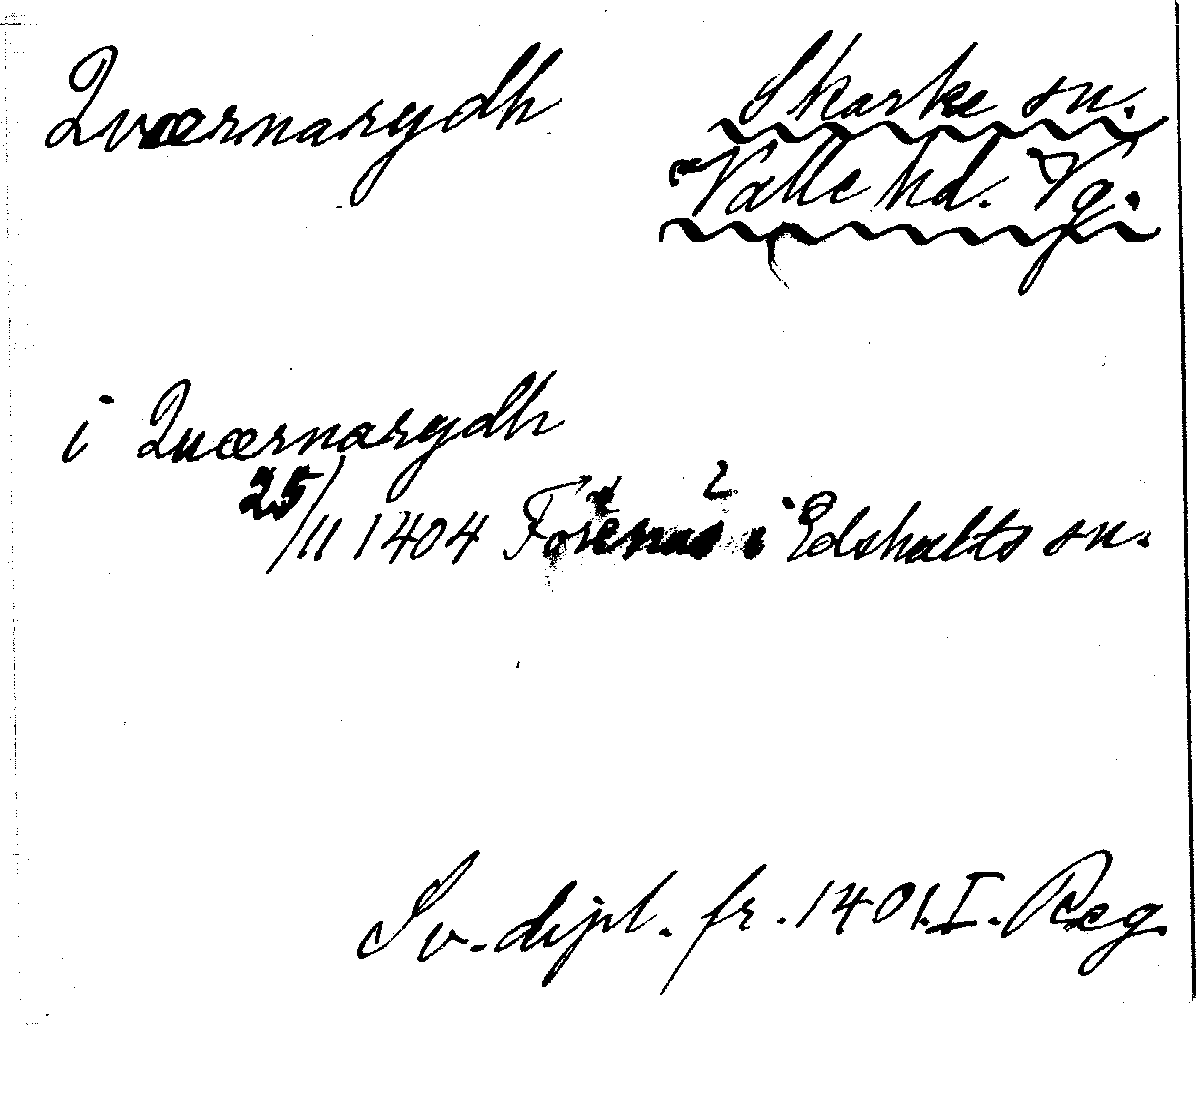 Qværnarydh
Skarke sn.
Valle hd. Vg.
i Quærnarydh
25/11 1404 i Edshults sn.
Sv. dipl. fr. 1401. I. Reg